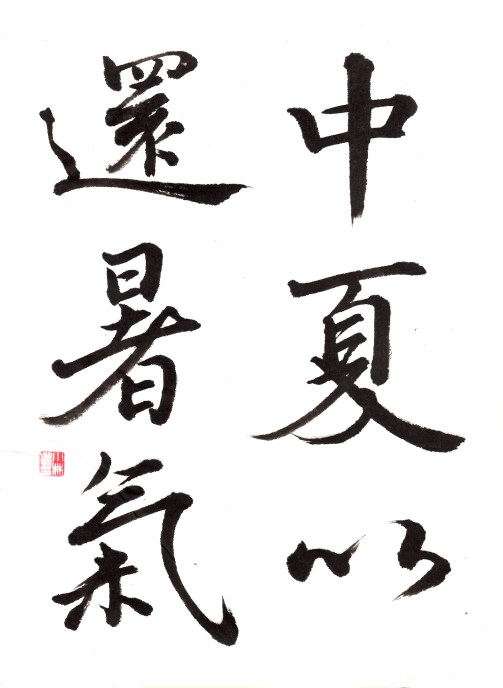 中夏以
還暑氣